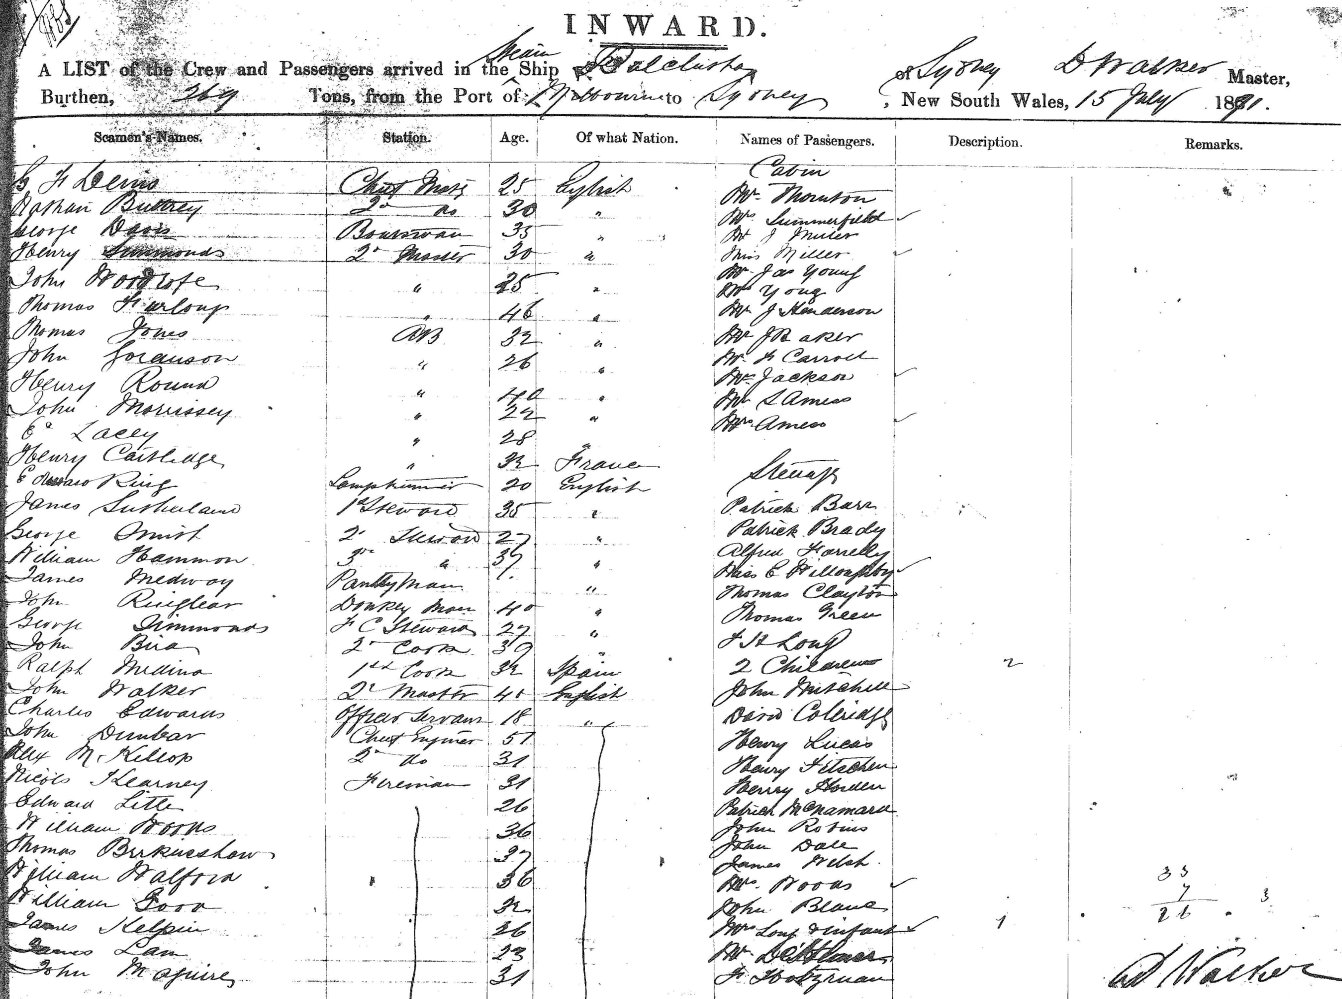 INWARD.
A LIST of the Crew and Passengers arrived in the Ship Balclutha of Sydney D Walker Master,
Burthen, 269 Tons, from the Port of Melbourne to Sydney, New South Wales, 15 July 1871.
Seamen's Names. Station. Age. Of what Nation. Names of Passengers. Description. Remarks.
Cabin
Chief Mate 25 English Mr Thornton
Nathan Buttrey 2nd do 30 " Mrs Summerfield
George Davis Boatswain 35 " Mr J Miller
Henry Simmonds 2nd Master 30 " Miss Miller
John Woodrofe " 25 " Mr Jas Young
Mrs Young
Thomas Furlong " 46 " Mr J Henderson
Thomas Jones AB 32 " Mr J Baker
John " 26 " Mr F Carroll
Henry Round " 40 " Mrs Jackson
John Morrissey " 22 " Mr S Amess
Mrs Amess
Ed Lacey " 28 "
Henry Cartledge " 32 France
Steerage
Edward King Lamptrimmer 20 English
James Sutherland 1st Steward 35 " Patrick Barr
George Smith 2nd Steward 27 " Patrick Brady
William Hammon 3rd " 37 " Alfred Farrelly
James Medway Pantry Man " Miss E Willoughby
Thomas Clayton
John Donkey Man 40 " Thomas Green
George Simmonds F C Steward 27 " F H Long
John Bird 2nd Cook 39 "
Ralph Medina 1st Cook 32 Spain 2 Children 2
John Walker 2nd Master 40 English John Mitchell
Charles Edwards Officers Servant 18 " David Coleridge
John Dunbar Chief Engineer 51 Henry Lucas
Alex McKillop 2nd do 31 Henry Fitschen
Nicols Kearney Fireman 31 Henry Horden
Edward Little 26 Patrick McNamara
William Woods 36 John Robins
Thomas Birkinshaw 37 John Dale
James Welsh
William Walford 36 Mrs Woods
33
7
26 3
William Good 32 John Blane
James Kelpin 36 Mrs Long & Infant 1
James Law 23 Mr
John Maguire 31 F Holtzman
D Walker